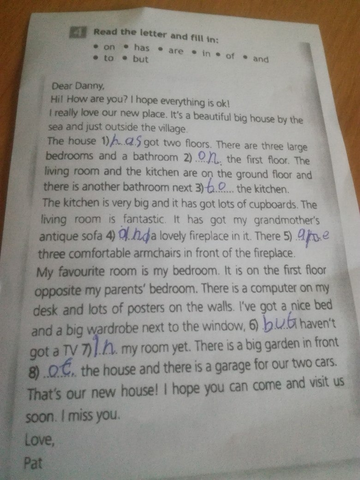 4 Read the letter and fill in:
• on • has • are • in • of • and
• to • but
Dear Danny,
Hi! How are you? I hope everything is ok!
I really love our new place. It's a beautiful big house by the
sea and just outside the village.
The house 1) has got two floors. There are three large
bedrooms and a bathroom 2) on the first floor. The
living room and the kitchen are on the ground floor and
there is another bathroom next 3) to the kitchen.
The kitchen is very big and it has got lots of cupboards. The
living room is fantastic. It has got my grandmother's
antique sofa 4) and a lovely fireplace in it. There 5) are
three comfortable armchairs in front of the fireplace.
My favourite room is my bedroom. It is on the first floor
opposite my parents' bedroom. There is a computer on my
desk and lots of posters on the walls. I've got a nice bed
and a big wardrobe next to the window, 6) but haven't
got a TV 7) In my room yet. There is a big garden in front
8) of the house and there is a garage for our two cars.
That's our new house! I hope you can come and visit us
soon. I miss you.
Love,
Pat